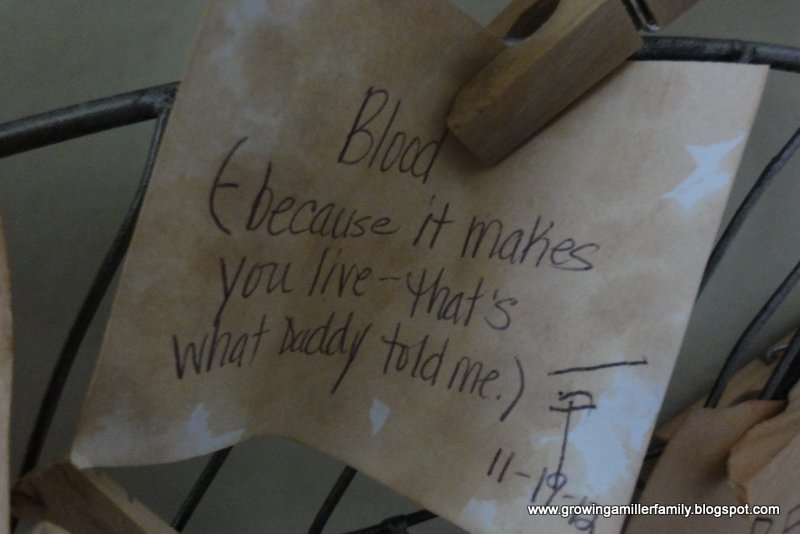 Blood
(-because it makes
you live-that's
what Daddy told me.)
11-19-12
www.growingamillerfamily.blogspot.com